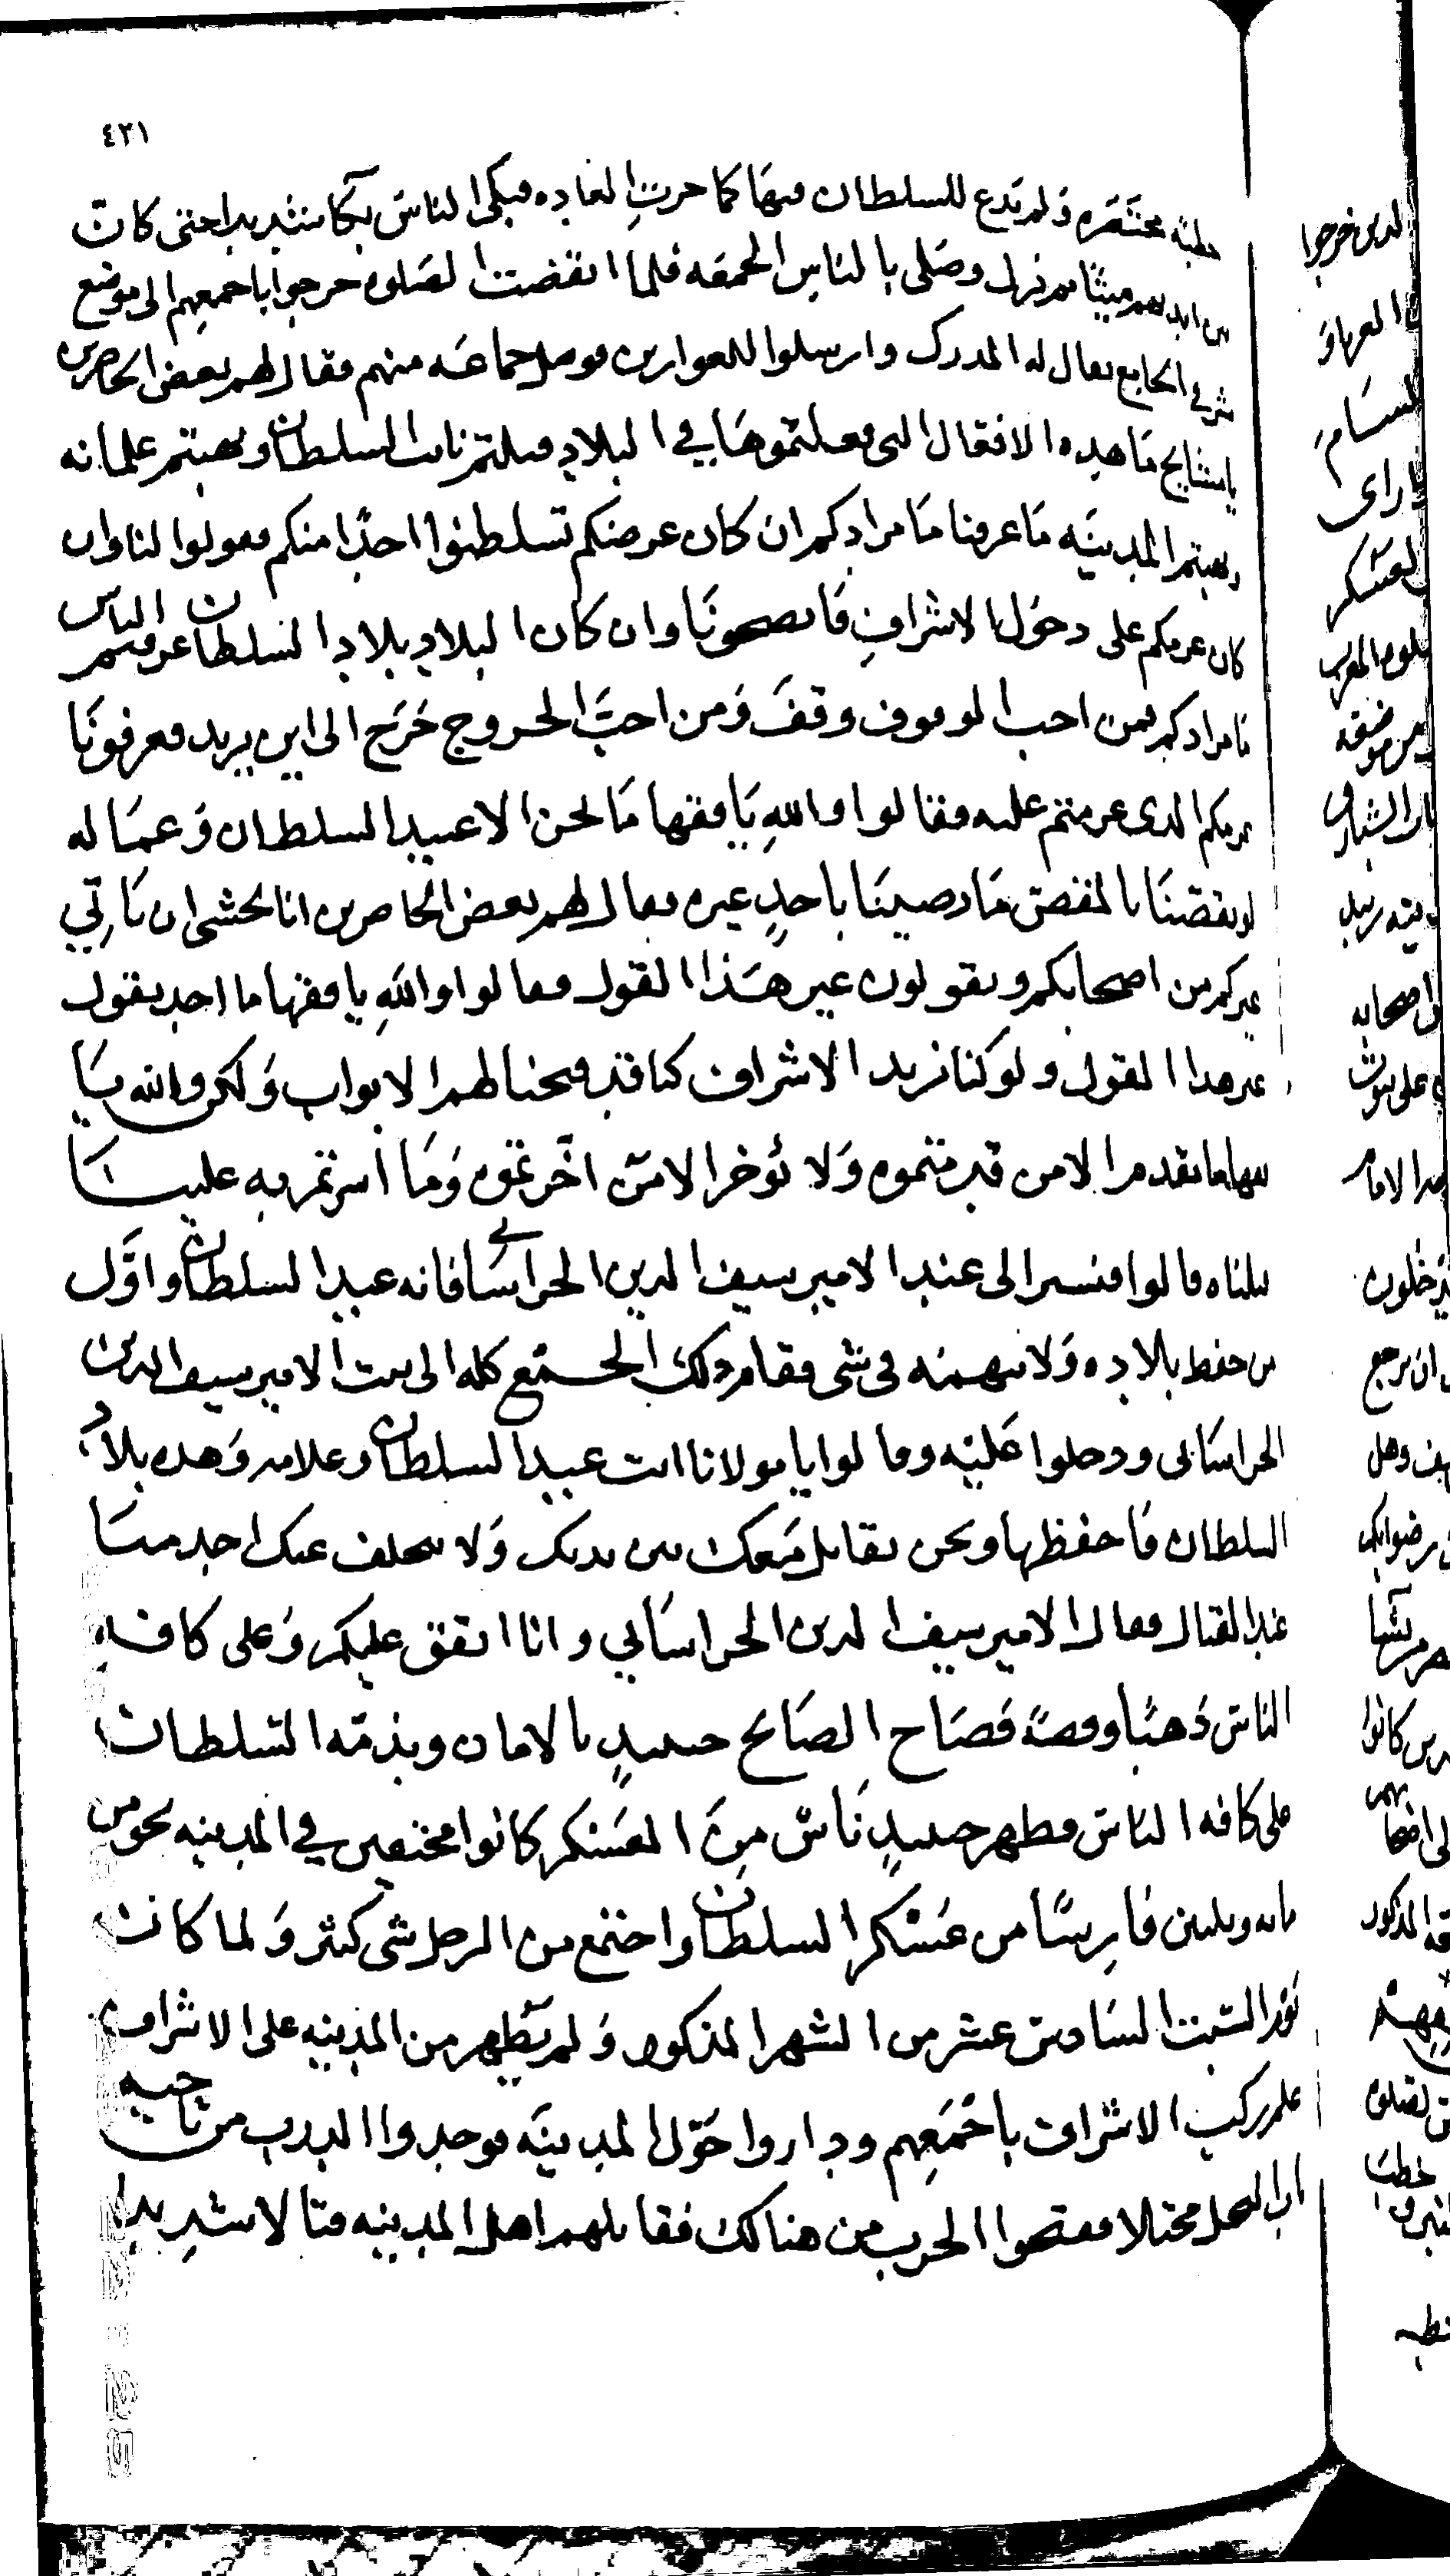 ٤٢١
خطبه مختصره ولم يدع للسلطان فيها كما جرت العاده فبكى الناس بكاء شديدا حتى كان
بين ايديهم ميتا ثم نزل وصلى بالناس الجمعه فلما انقضت الصلوه خرجوا باجمعهم الى موضع
شرقي الجامع يقال له المدرك وارسلوا للعوارين فوصل جماعه منهم فقال لهم بعض الحاضرين
يا مشايخ ما هذه الافعال التي فعلتموها في البلاد قتلتم نائب السلطان ونهبتم غلمانه
ونهبتم المدينه ما عرفنا ما مرادكم ان كان غرضكم تسلطنوا احدا منكم فقولوا لنا وان
كان عزمكم على دخول الاشراف فانصحونا وان كان البلاد بلاد السلطان عرفتم الناس
ما مرادكم فمن احب الوقوف وقف ومن احب الخروج خرج الى اين يريد فعرفونا
عزمكم الذي عزمتم عليه فقالوا والله يا فقها ما نحن الا عبيد السلطان وعماله
لو يقصنا بالمقص ما رضينا باحد غيره فقال لهم بعض الحاضرين انا نخشى ان ياتي
غيركم من اصحابكم ويقولون غير هذا القول فقالوا والله يا فقها ما احد يقول
غير هذا القول ولو كنا نريد الاشراف كنا قد فتحنا لهم الابواب ولكن والله يا
فقها ما يقدم الا من قدمتموه ولا يؤخر الا من اخرتموه وما امرتم به علينا
قبلناه قالوا فنسير الى عند الامير سيف الدين الخراساني فانه عبد السلطان واول
من حفظ بلاده ولا نتهمه في شي فقام ذلك الجمع كله الى بيت الامير سيف الدين
الخراساني ودخلوا عليه وقالوا يا مولانا انت عبد السلطان وغلامه وهذه بلاد
السلطان فاحفظها ونحن نقاتل معك بين يديك ولا يتخلف عنك احد منا
عند القتال فقال الامير سيف الدين الخراساني وانا انفق عليكم وعلى كافه
الناس ذهبا وفضة فصاح الصايح حينيذ بالامان وبذمة السلطان
على كافه الناس فظهر حينيذ ناس من العسكر كانوا مختفين في المدينه نحو من
مايه وثلثين فارسا من عسكر السلطان واجتمع من الرجل شي كثير ولما كان
يوم السبت السادس عشر من الشهر المذكور ولم يظهر من المدينه على الاشراف
علم ركب الاشراف باجمعهم وداروا حول المدينه فوجدوا الدرب من ناحيه
باب النخل مختلا فقصدوا الحرب من هنالك فقاتلهم اهل المدينه قتالا شديدا